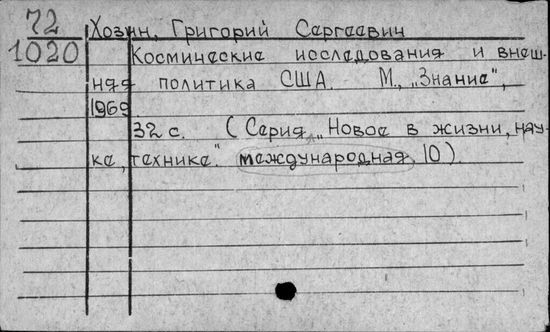 72 Хозин, Григорий Сергеевич
1020 Космические исследования и внеш-
няя политика США. М., „Знание",
1969
32 с. (Серия „Новое в жизни, нау-
ке, технике". международная, 10).